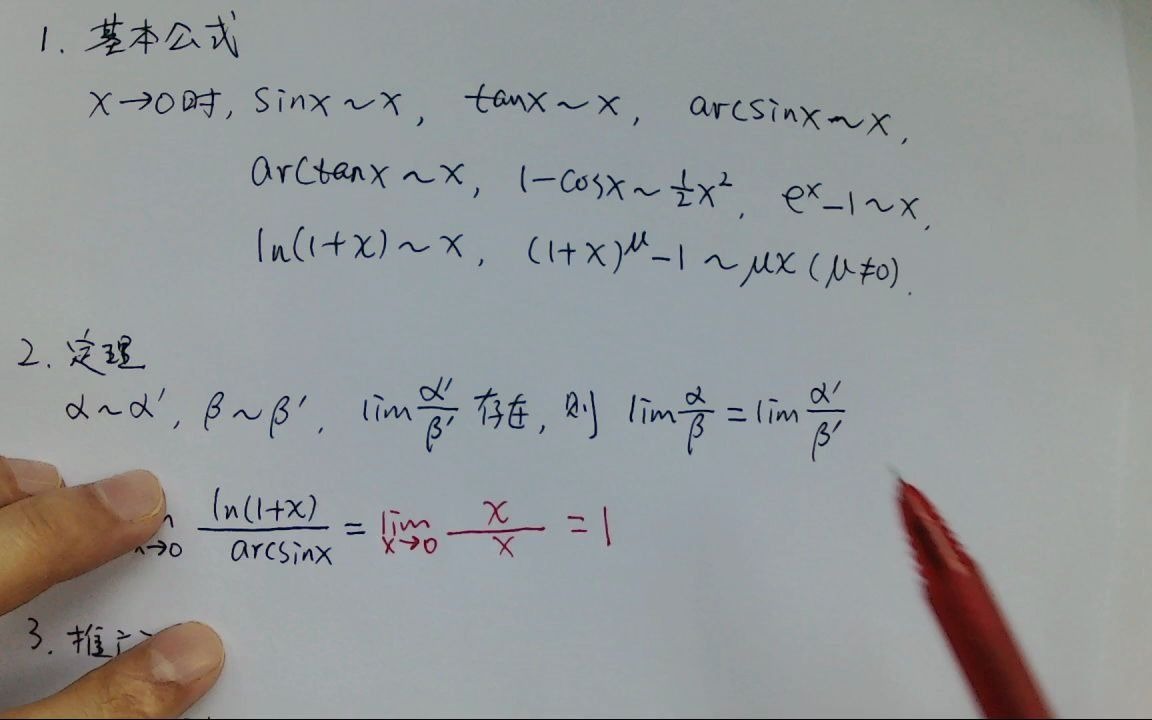 1. 基本公式
x→0时, sinx~x, tanx~x, arcsinx~x,
arctanx~x, 1-cosx~½x², eˣ-1~x,
ln(1+x)~x, (1+x)^μ-1~μx (μ≠0).
2. 定理
α~α′, β~β′, lim α′/β′ 存在, 则 lim α/β = lim α′/β′
→0 ln(1+x)/arcsinx = lim x→0 x/x = 1
3. 推广